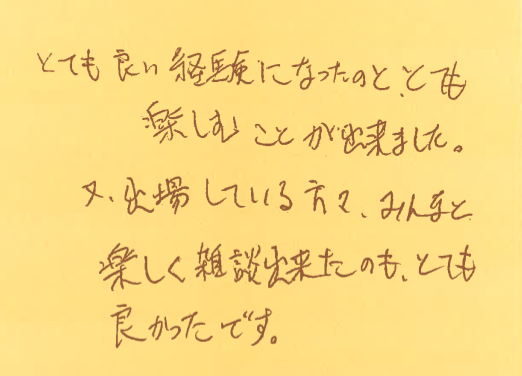 とても良い経験になったのと、とても
楽しむことが出来ました。
又、出場している方々、みんなと
楽しく雑談出来たのも、とても
良かったです。